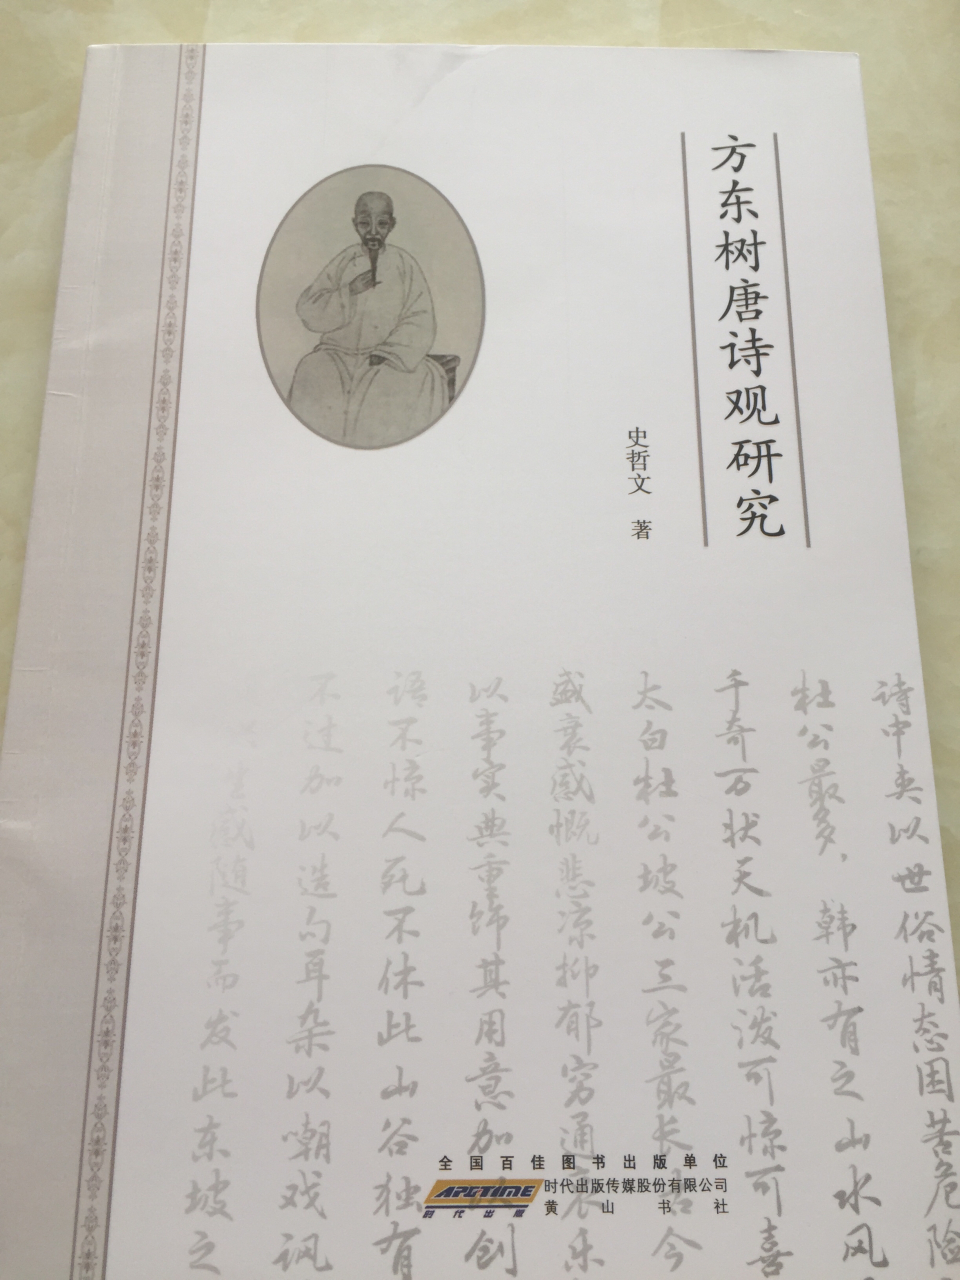 方东树唐诗观研究
史哲文 著
诗中夹以世俗情态困苦危险
杜公最多，韩亦有之山水风
千奇万状天机活泼可惊可喜
太白杜公坡公三家最长古今
盛衰感慨悲凉抑郁穷通哀乐
以事实典重饰其用意加以创
语不惊人死不休此山谷独有
不过加以造句耳杂以嘲戏讽
生感随事而发此东坡之
全国百佳图书出版单位
APGTIME
时代出版
时代出版传媒股份有限公司
黄山书社